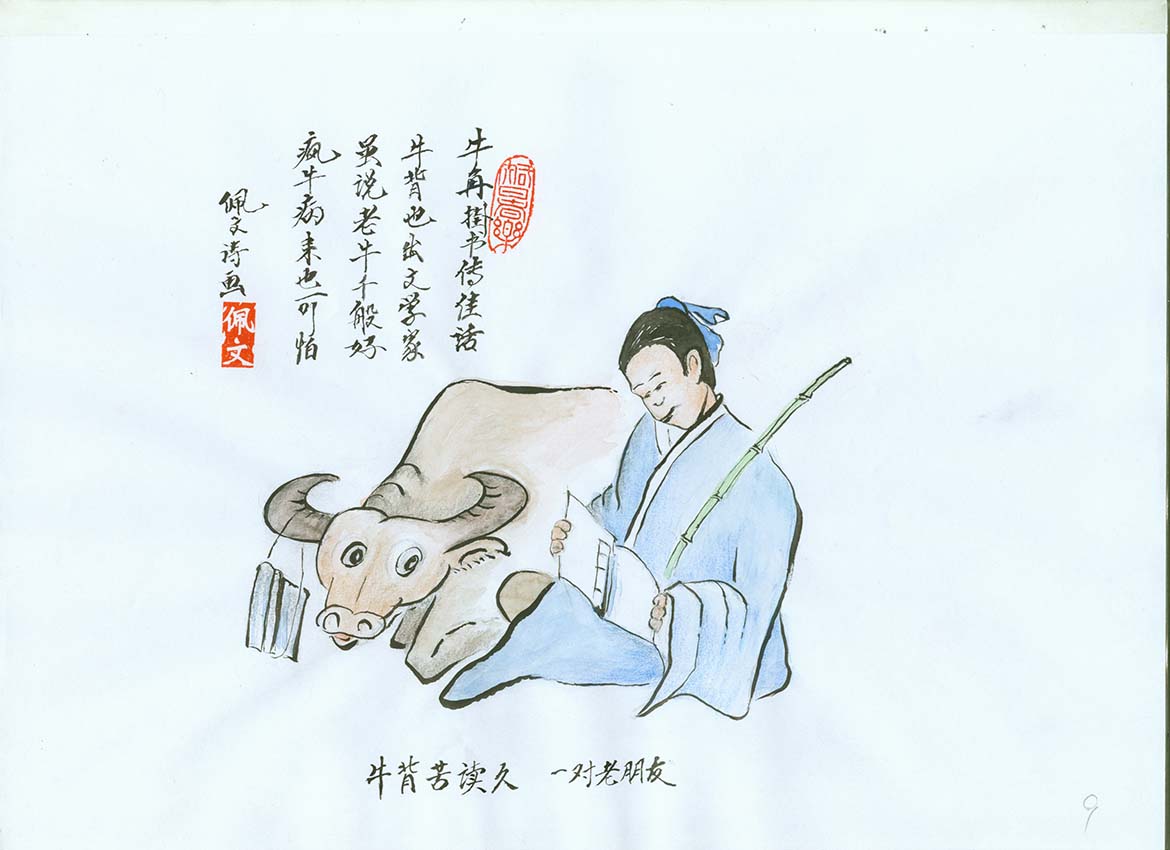 牛角掛书传佳话
牛背也出文学家
虽说老牛千般好
疯牛病来也可怕
佩文诗画
佩文
牛背苦读久 一对老朋友
9